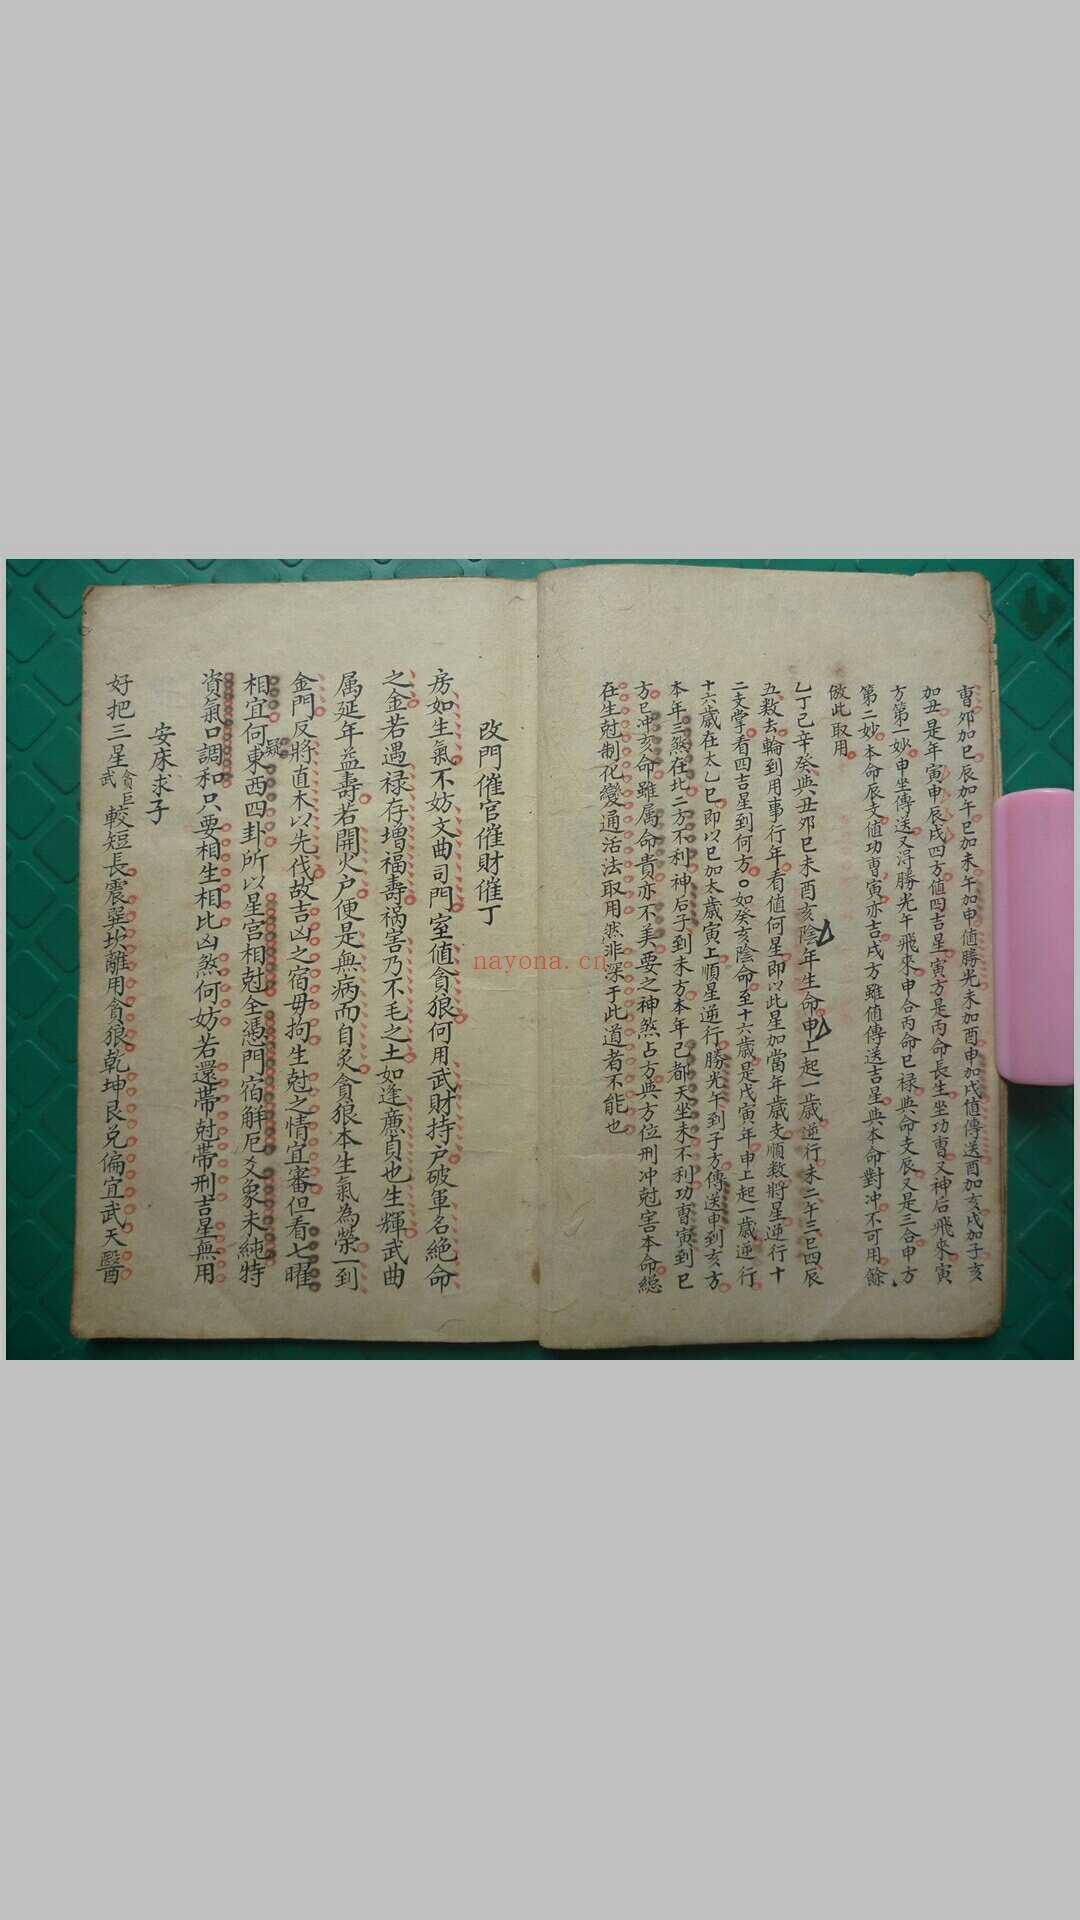 曹夘加巳辰加午巳加未午加申值勝光未加酉申加戌值傳送酉加亥戌加子亥
加丑是年寅申辰戌四方值四吉星寅方是丙命長生坐功曹又神后飛來寅
方第一妙申坐傳送又淂勝光午飛來申合丙命巳禄與命支辰又是三合申方
第二妙本命辰支值功曹寅亦吉戌方雖值傳送吉星與本命對冲不可用餘
倣此取用
乙丁己辛癸與丑夘巳未酉亥陰年生命申上起一歲逆行未二午三巳四辰
五数去輪到用事行年看值何星即以此星加當年歲支順数將星逆行十
二支掌看四吉星到何方○如癸亥陰命至十六歲是戊寅年申上起一歲逆行
十六歲在太乙巳即以巳加太歲寅上順星逆行勝光午到子方傳送申到亥方
本年三煞在北二方不利神后子到未方本年己都天坐未不利功曹寅到巳
方巳冲亥命雖属命貴亦不美要之神煞占方與方位刑冲尅害本命總
在生尅制化變通活法取用然非深于此道者不能也
改門催官催財催丁
房如生氣不妨文曲司門室值貪狼何用武財持户破軍名絕命
之金若遇禄存增福壽禍害乃不毛之土如逢廉貞也生輝武曲
属延年益壽若開火户便是無病而自炙貪狼本生氣為榮一到
金門反將直木以先伐故吉凶之宿毋拘生尅之情宜審但看七曜
相宜何疑東西四卦所以星宮相尅全憑門宿解厄爻象未純特
資氣口調和只要相生相比凶煞何妨若還帶尅帶刑吉星無用
安床求子
好把三星貪巨武較短長震巽坎離用貪狼乾坤艮兑偏宜武天醫
nayona.cn